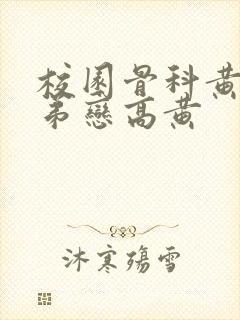 校園骨科黃
弟戀高黃
沐寒殤雪